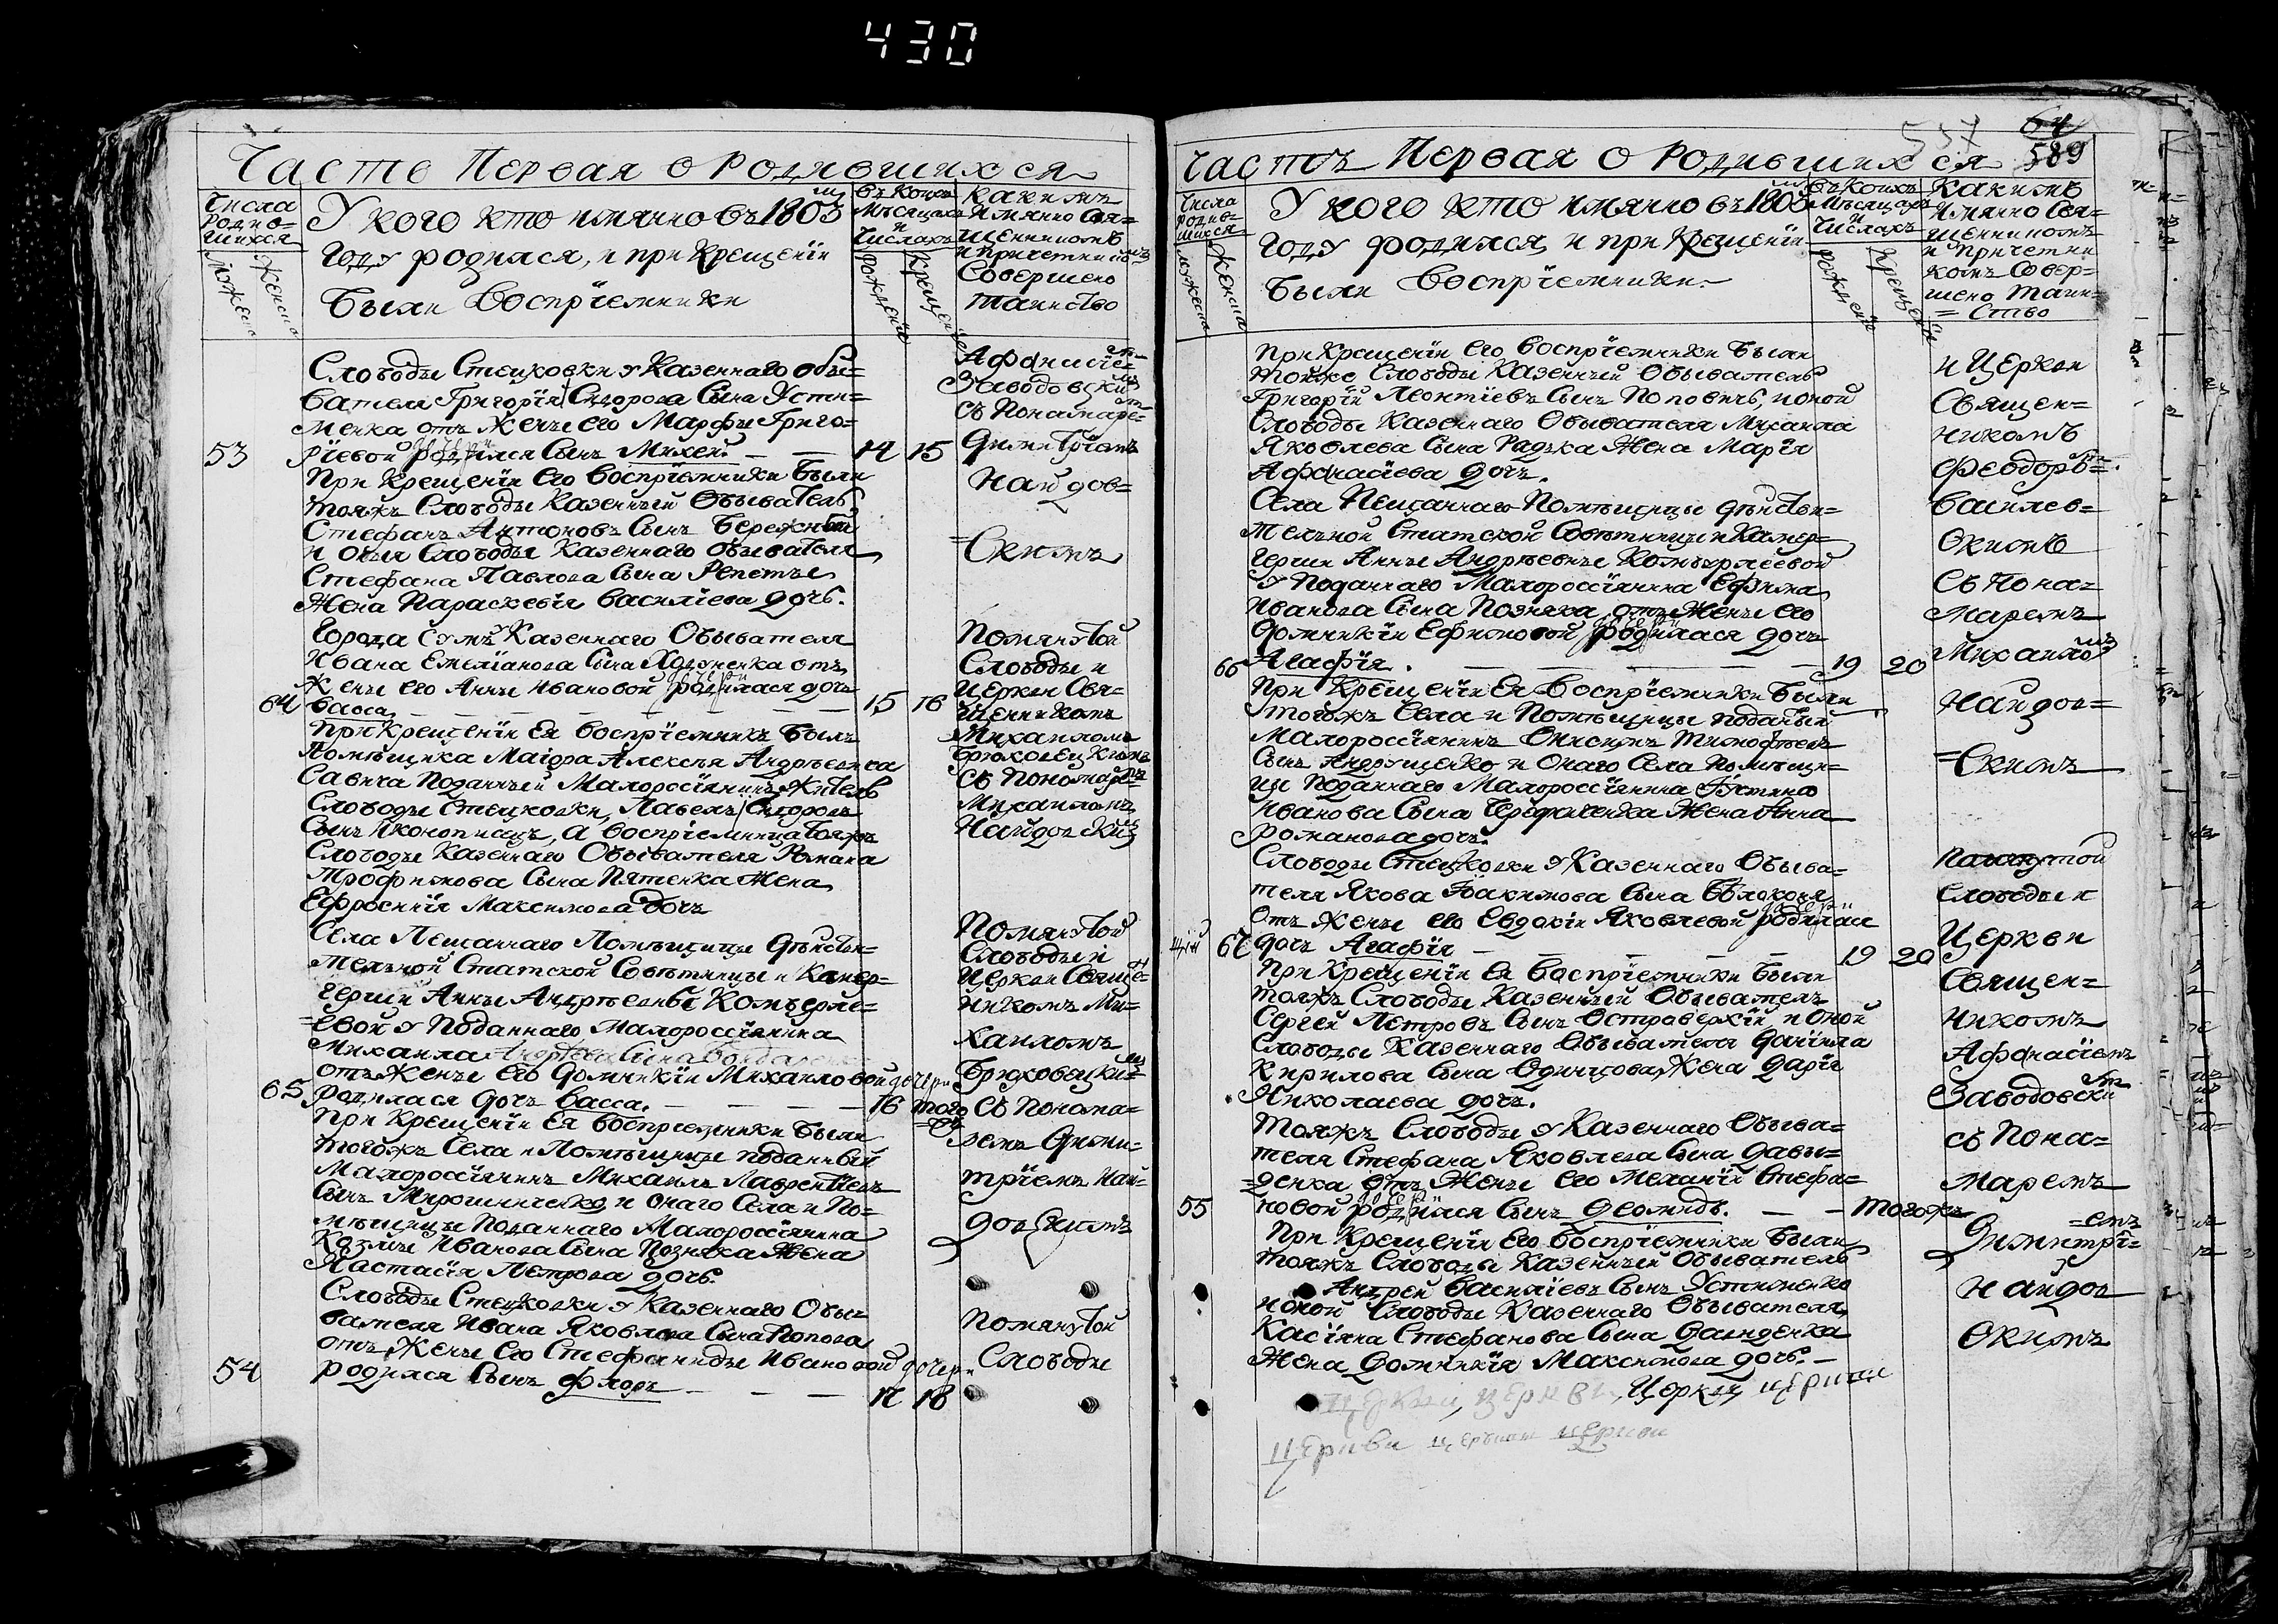 430
Часть Первая о Родившихся
Числа
Родив=
шихся
Мужеска
Женска
У кого кто имянно въ 1803 м
Году родился, и при Крещеніи
были Воспріемники
Въ Коихъ
Мѣсяцахъ
и
Числахъ
Рожденія
Крещенія
Какимъ
Имянно Свя=
щенникомъ
и причетникомъ
Совершено
таинство
Слободы Стецковки у Казеннаго обы=
вателя Григорія Сидорова Сына Усти=
менка отъ жены его Марфы Григо=
53 ріевой дочери родился Сынъ Михей. — — 14 15
При Крещеніи Его Воспріемники были
тояжъ Слободы Казенный Обыватель
Стефанъ Антоновъ Сынъ Бережный
и оныя Слободы Казеннаго обывателя
Стефана Павлова Сына Репетье
Жена Параскевія Василіева дочь.
Афанасіе=
Заводовским
съ Понамаре=
Димитріемъ
Найдов=
=Скимъ
Города Сумъ у Казеннаго Обывателя
Ивана Емеліанова Сына Ходуненка отъ
Жены его Анны Ивановой дочери родилася дочь
64 Васса. — — — — — — 15 16
При Крещеніи Ея Воспріемникъ былъ
Помѣщика Маіора Алексѣя Андрѣевича
Савича Поданный Малоросіянинъ Житель
Слободы Стецковки, Павелъ Сидоровъ
Сынъ Иконописецъ, а воспріемница тояжъ
Слободы Казеннаго Обывателя Романа
Трофимова Сына Пятенка Жена
Ефросинія Максимова дочь
Помянутой
Слободы и
Церкви Свя=
щенникомъ
Михаиломъ
Брюховецкимъ
Съ Пономаремъ
Михаиломъ
Найдовским
Села Песчаннаго Помѣщицы дѣйстви=
тельной Статской Совѣтницы и Камер=
герши Анны Андрѣевны Комъерле=
=евой у Поданнаго Малоросіянина
Михаила Андрѣева Сына Бондаренка
отъ Жены его Домникіи Михаиловой дочери
65 родилася дочь Васса. — — — — 16 того
При Крещеніи Ея Воспріемники были
тогожъ Села и Помѣщицы поданный
Малоросіянинъ Михаилъ Лаврентіевъ
Сынъ Мирошниченко, и онаго Села и По=
мѣщицы Поданнаго Малоросіянина
Козмы Иванова Сына Позняка Жена
Настасія Петрова дочь.
Помянутой
Слободы и
Церкви Свяще=
никомъ Ми=
хаиломъ
Брюховецким
Съ Понома=
ремъ Дими=
тріемъ Най=
довскимъ
Слободы Стецковки у Казеннаго Обы=
вателя Ивана Яковлева Сына Попова
отъ Жены Его Стефаниды Ивановой дочери
54 родился Сынъ Флоръ — — — 17 18
Помянутой
Слободы
64
557
589
Часть Первая о Родившихся
Числа
Родив=
шихся
Мужеска
Женска
У кого кто имянно въ 1803 м
Году родился, и при Крещеніи
Были Воспріемники.
Въ Коихъ
Мѣсяцахъ
и
Числахъ
Рожденія
Крещенія
Какимъ
Имянно Свя=
щенникомъ
и Причетни
комъ Совер=
шено Таин=
= Ство
при Крещеніи Его Воспріемники были
тойже Слободы Казенный Обыватель
Григорій Леонтіевъ Сынъ Поповичъ, и оной
Слободы Казеннаго Обывателя Михаила
Яковлева Сына Радька Жена Марія
Афанасіева дочь.
и Церкви
Священ=
никомъ
Феодоро=
Василев=
Скимъ
Съ Пона=
маремъ
Михаиломъ
Найдов=
=Скимъ
Села Песчаннаго Помѣщицы дѣйстви=
тельной Статской Совѣтницы и Камер=
герши Анны Андрѣевны Комъерлеевой
у Поданнаго Малороссіянина Ефима
Иванова Сына Позняка отъ Жены его
Домникіи Ефимовой дочери родилася дочь
66 Агафія. — — — — — 19 20
При Крещеніи Ея Воспріемники были
тогожъ Села и Помѣщицы поданный
Малороссіянинъ Онисимъ Тимофѣевъ
Сынъ Андрущенко и Онаго Села Помѣщи=
цы Поданнаго Малороссіянина
Иванова Сына Жена Анна
Романова дочь.
Слободы Стецковки у Казеннаго Обыва=
теля Якова Іоакимова Сына Бѣлоконя
Отъ Жены его Евдокіи Яковлевой дочери родилася
67 дочь Агафія — — — — 19 20
При Крещеніи Ея Воспріемники были
тояжъ Слободы Казенный Обыватель
Сергей Петровъ Сынъ Островерхій и оной
Слободы Казеннаго Обывателя Даніила
Кирилова Сына Одинцова Жена Дарія
Николаева дочь.
Помянутой
Слободы и
Церкви
Священ=
никомъ
Афанасіемъ
Заводовским
съ Пона=
маремъ
Димитрі=
=емъ
Найдов
Скимъ
Тояжъ Слободы у Казеннаго Обыва=
теля Стефана Яковлева Сына Дави=
=денка Отъ Жены его Меланіи Стефа=
55 новой дочери родился Сынъ Деомидъ. — — тогожъ
При Крещеніи Его Воспріемники были
тояжъ Слободы Казенный Обыватель
Андрей Василіевъ Сынъ Устименко
и оной Слободы Казеннаго Обывателя
Касіяна Стефанова Сына Давиденка
Жена Домникія Максимова дочь. —
Церкви, церкви, Церкви, церкви
Церкви церкви церкви